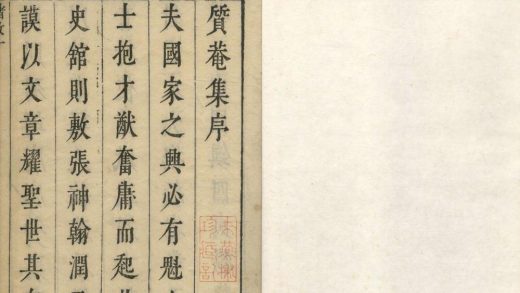 質菴集序
夫國家之興必有魁
士抱才猷奮庸而起
史舘則敷張神翰潤
謨以文章耀聖世其